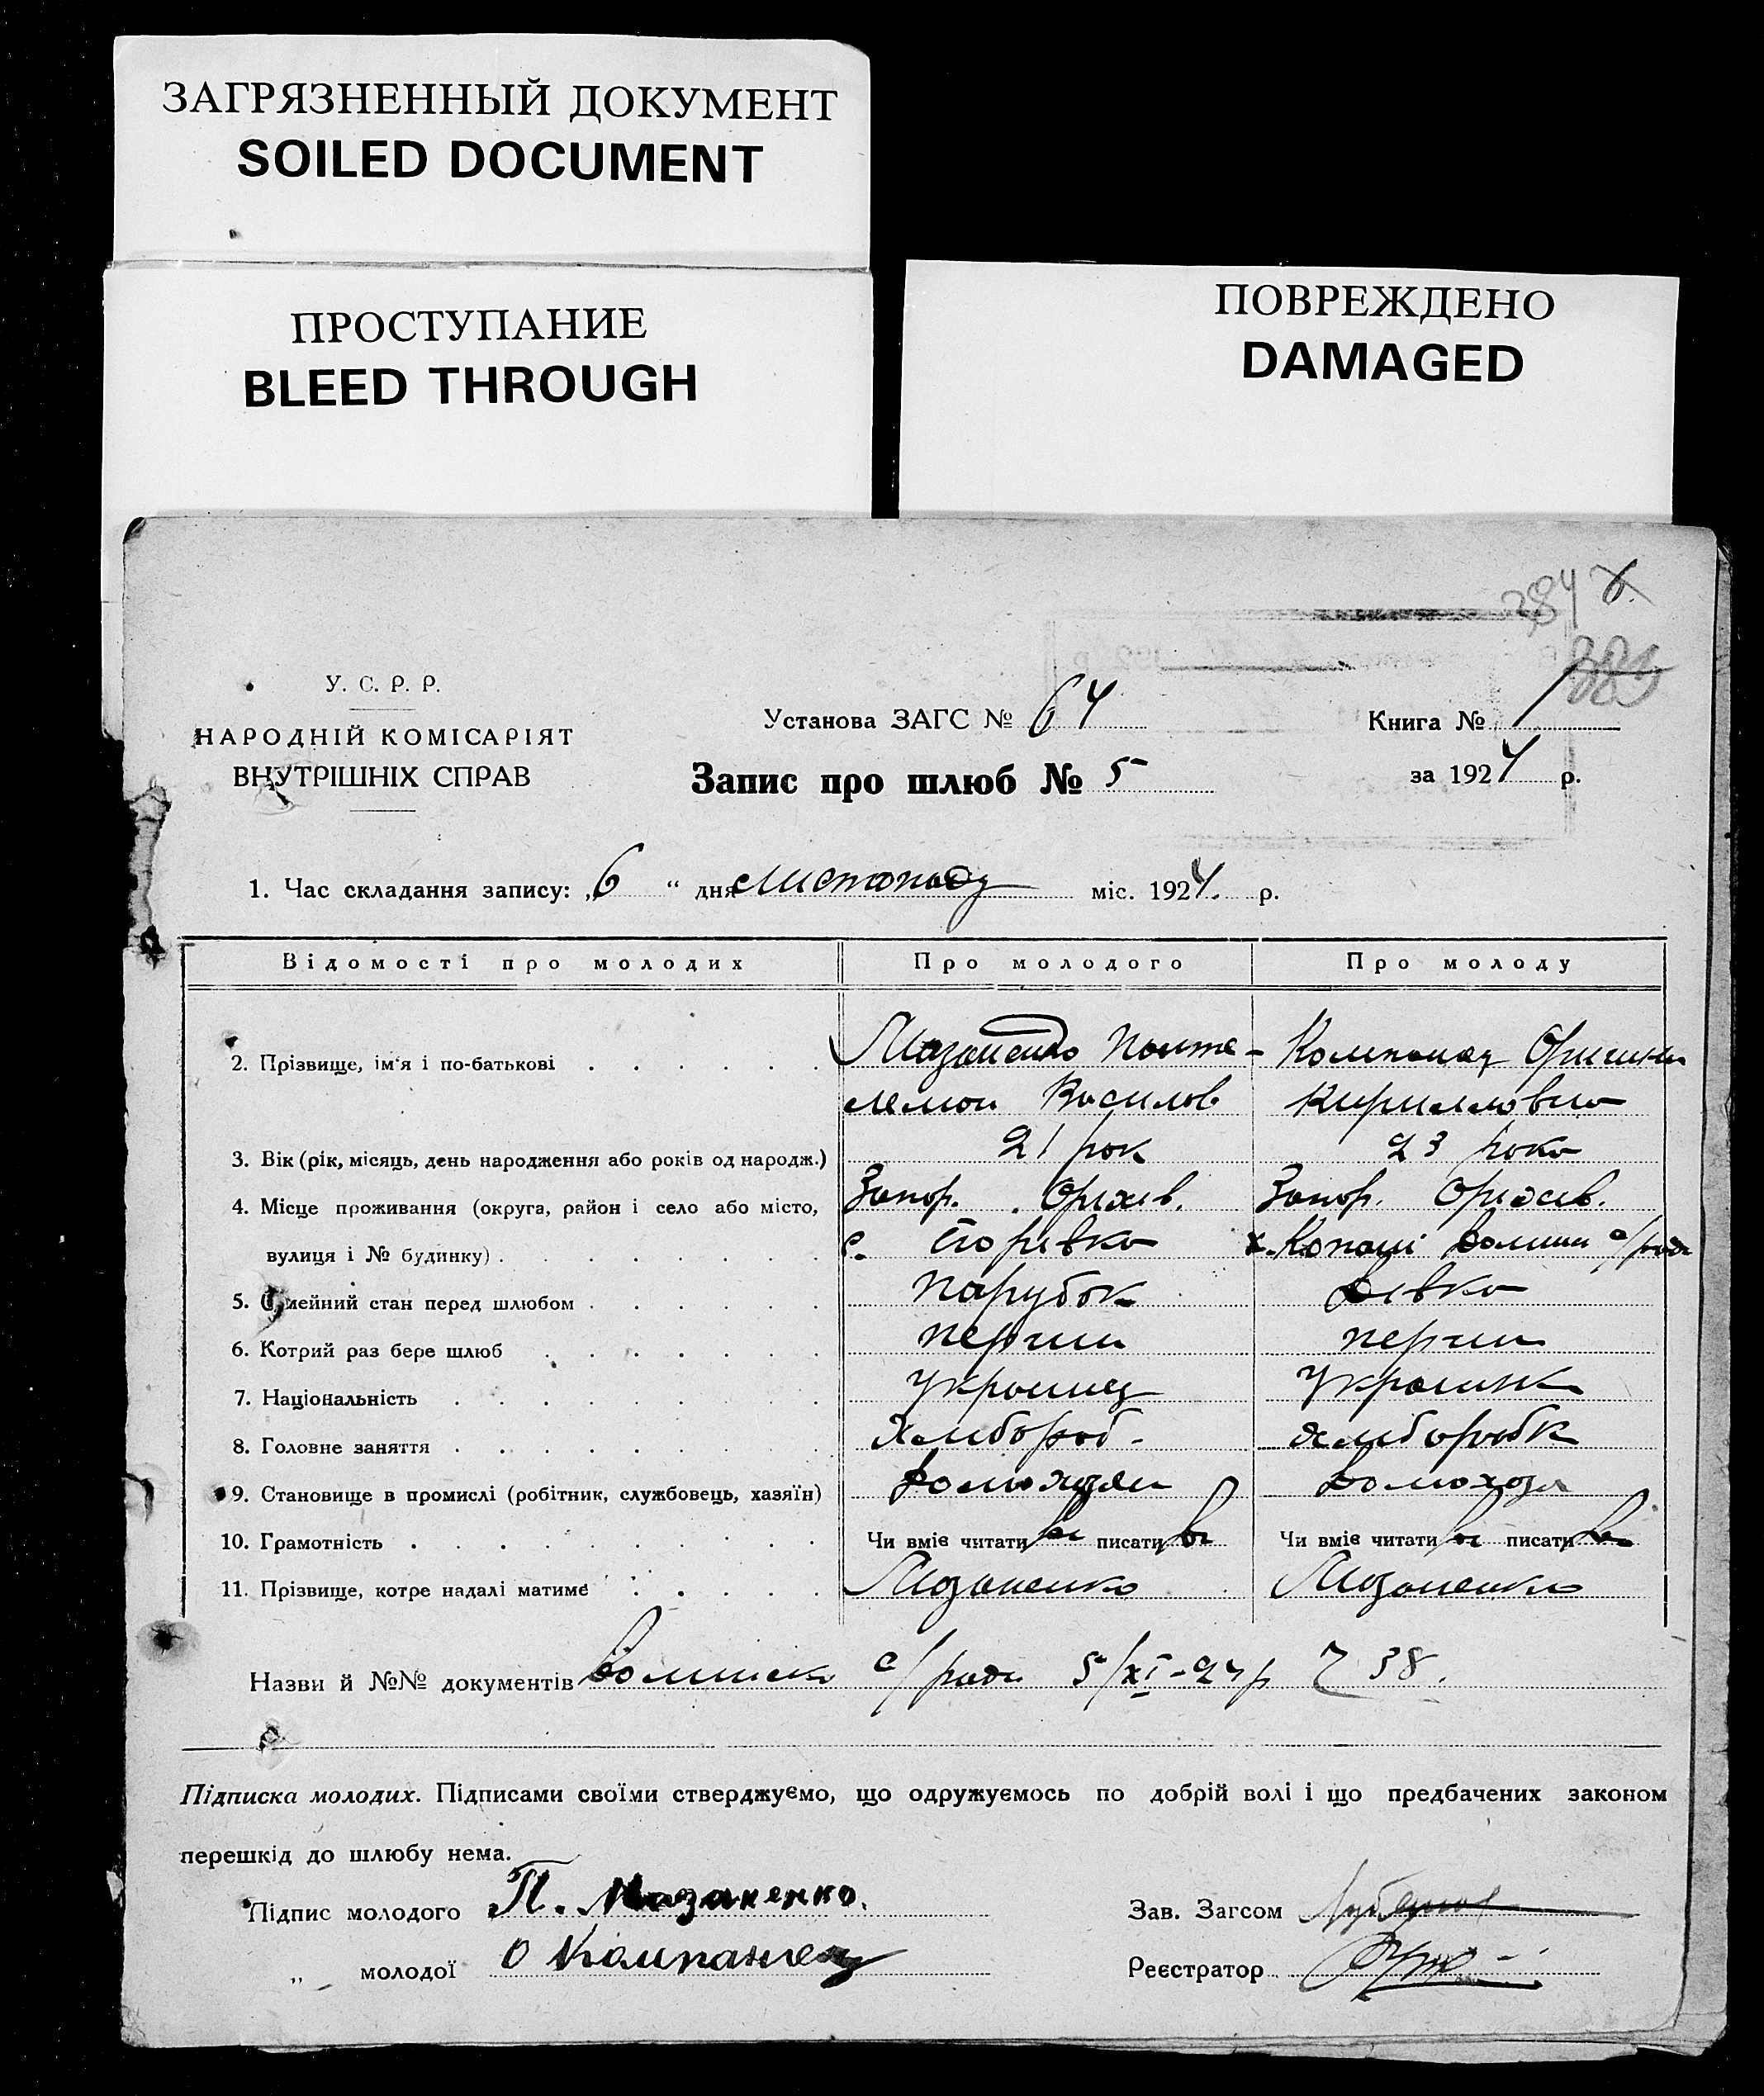 ЗАГРЯЗНЕННЫЙ ДОКУМЕНТ
SOILED DOCUMENT
ПРОСТУПАНИЕ
BLEED THROUGH
ПОВРЕЖДЕНО
DAMAGED
384
У. С. Р. Р.
НАРОДНІЙ КОМІСАРІЯТ
ВНУТРІШНІХ СПРАВ
Установа ЗАГС № 64
Книга № 1
Запис про шлюб № 5
за 1924 р.
1. Час складання запису: „6 “ дня листопаду міс. 1924. р.
Відомості про молодих Про молодого Про молоду
2. Прізвище, ім'я і по-батькові Мазаненко Панте- Компанеец
лемон Василов Кирилловна
3. Вік (рік, місяць, день народження або років од народж.) 21 рок 23 роки
4. Місце проживання (округа, район і село або місто, Запор. Оріхів. Запор. Оріхів.
вулиця і № будинку) с. Егорівка х. Копані с/ради
5. Сімейний стан перед шлюбом Парубок Дівка
6. Котрий раз бере шлюб перши перши
7. Національність Украинец Украинк
8. Головне заняття Хлибороб- хлиборобк
9. Становище в промислі (робітник, службовець, хазяїн) домохозяин домохозя
10. Грамотність Чи вміє читати писати Чи вміє читати писати
11. Прізвище, котре надалі матиме Мазаненко Мазаненко
Назви й №№ документів с/ради 5/XI-24р 38.
Підписка молодих. Підписами своїми стверджуємо, що одружуємось по добрій волі і що предбачених законом
перешкід до шлюбу нема.
Підпис молодого П. Мазаненко.
Зав. Загсом
„ молодої О Компанеец
Реєстратор